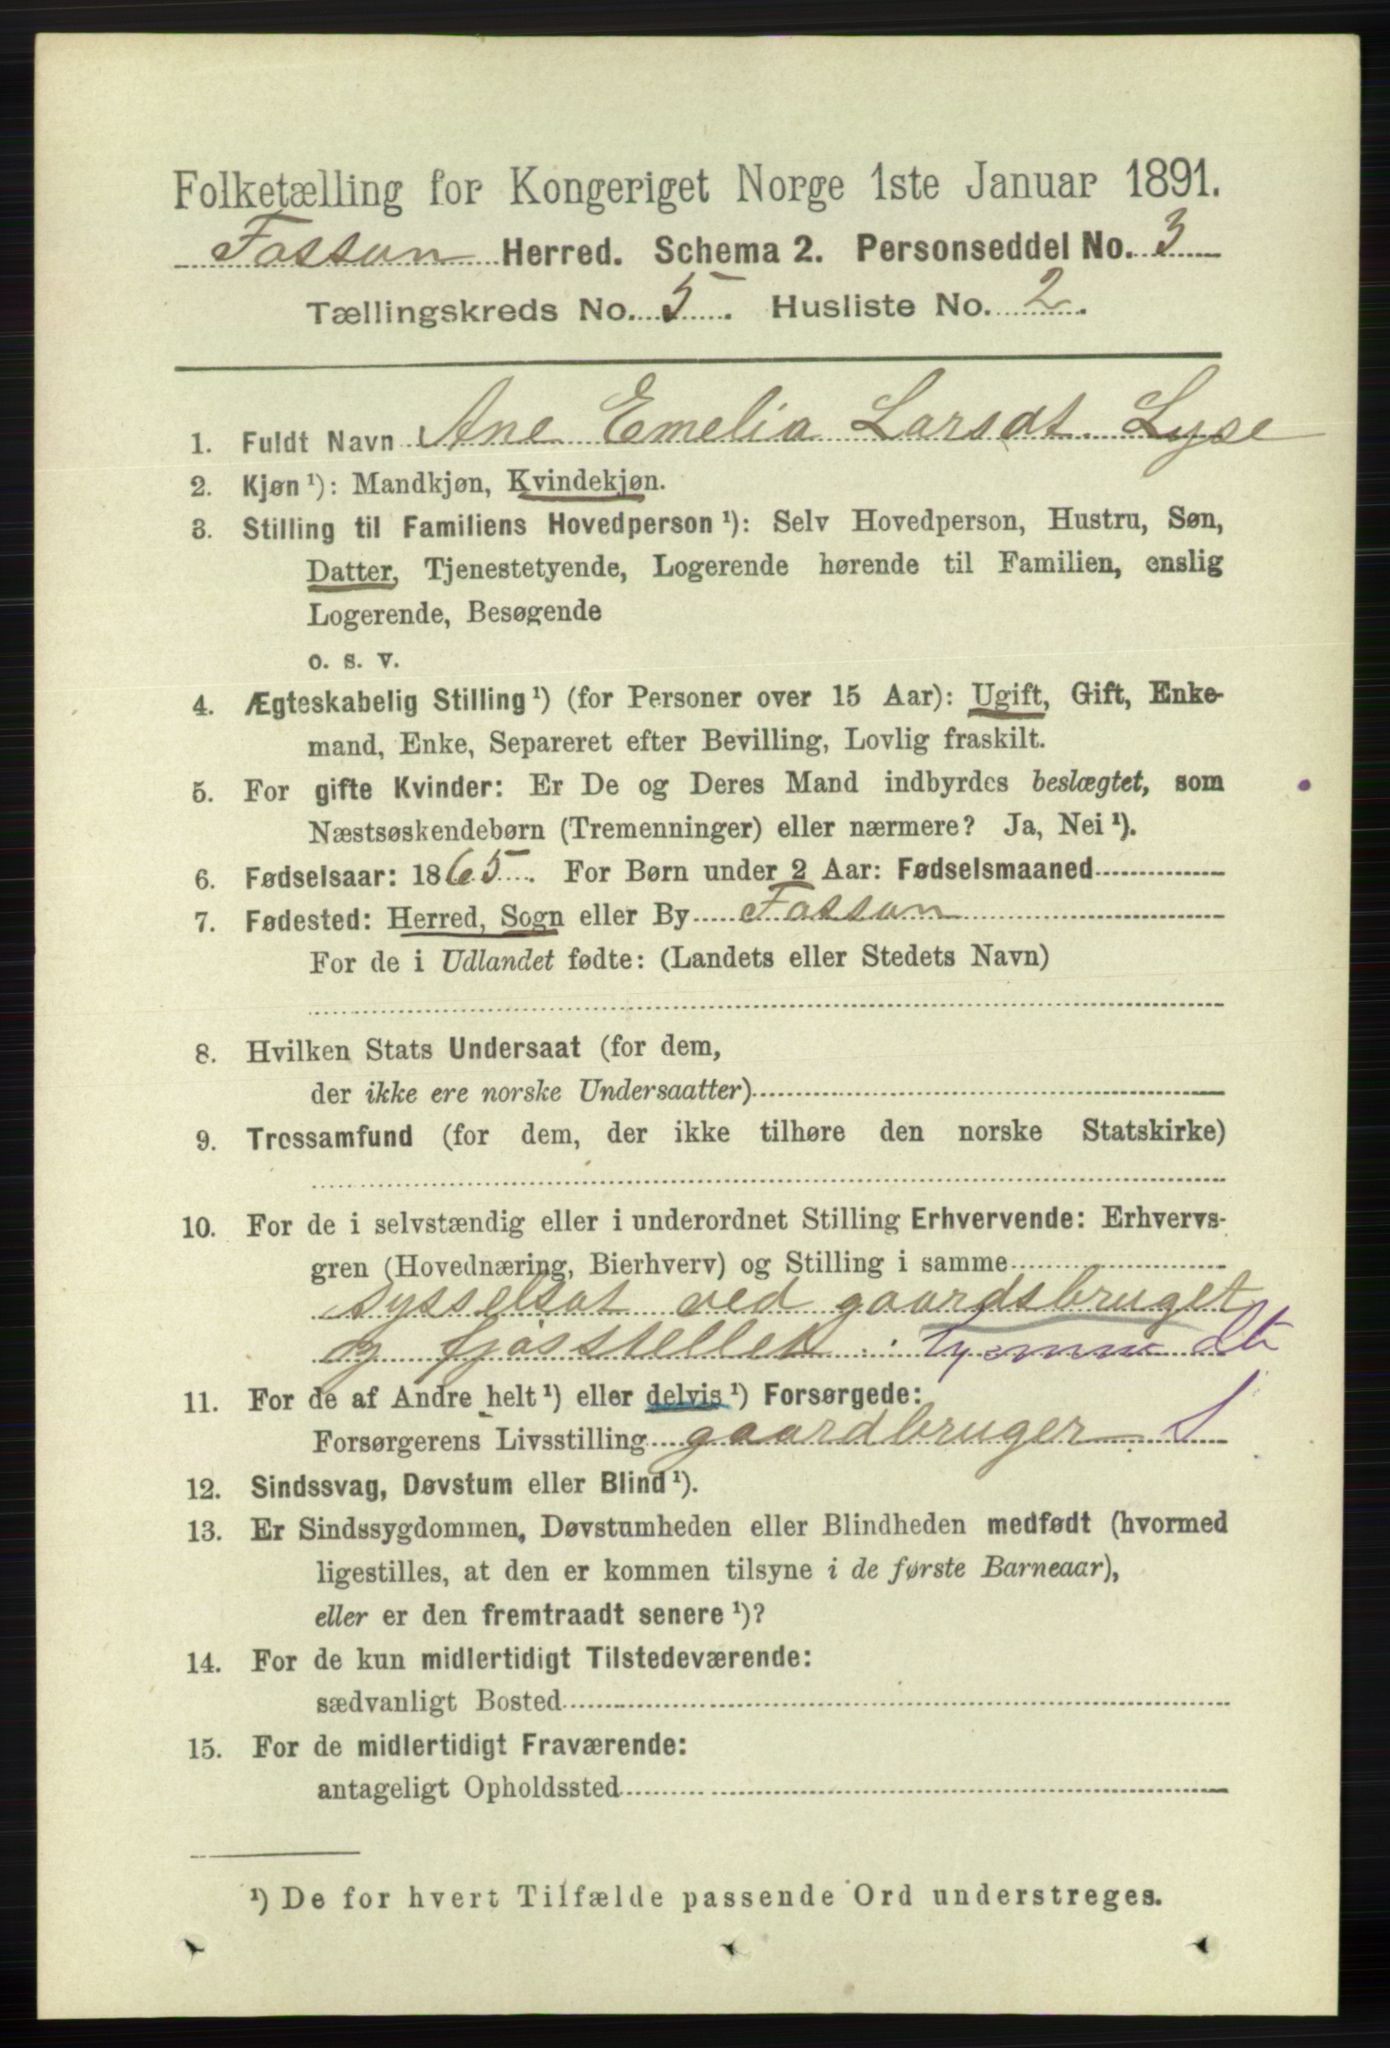 Folketælling for Kongeriget Norge 1ste Januar 1891.
Fossan Herred. Schema 2. Personseddel No. 3
Tællingskreds No. 5. Husliste No. 2.
1. Fuldt Navn Ane Emelia Larsdt. Lyse
2. Kjøn ¹): Mandkjøn, Kvindekjøn.
3. Stilling til Familiens Hovedperson ¹): Selv Hovedperson, Hustru, Søn,
Datter, Tjenestetyende, Logerende hørende til Familien, enslig
Logerende, Besøgende
o. s. v.
4. Ægteskabelig Stilling ¹) (for Personer over 15 Aar): Ugift, Gift, Enke-
mand, Enke, Separeret efter Bevilling, Lovlig fraskilt.
5. For gifte Kvinder: Er De og Deres Mand indbyrdes beslægtet, som
Næstsøskendebørn (Tremenninger) eller nærmere? Ja, Nei ¹).
6. Fødselsaar: 1865. For Børn under 2 Aar: Fødselsmaaned
7. Fødested: Herred, Sogn eller By Fossan
For de i Udlandet fødte: (Landets eller Stedets Navn)
8. Hvilken Stats Undersaat (for dem,
der ikke ere norske Undersaatter)
9. Trossamfund (for dem, der ikke tilhøre den norske Statskirke)
10. For de i selvstændig eller i underordnet Stilling Erhvervende: Erhvervs-
gren (Hovednæring, Bierhverv) og Stilling i samme
sysselsat ved gaardsbruget
og fjøsstellet.
11. For de af Andre helt ¹) eller delvis ¹) Forsørgede:
Forsørgerens Livsstilling gaardbruger
12. Sindssvag, Døvstum eller Blind ¹).
13. Er Sindssygdommen, Døvstumheden eller Blindheden medfødt (hvormed
ligestilles, at den er kommen tilsyne i de første Barneaar),
eller er den fremtraadt senere ¹)?
14. For de kun midlertidigt Tilstedeværende:
sædvanligt Bosted
15. For de midlertidigt Fraværende:
antageligt Opholdssted
¹) De for hvert Tilfælde passende Ord understreges.